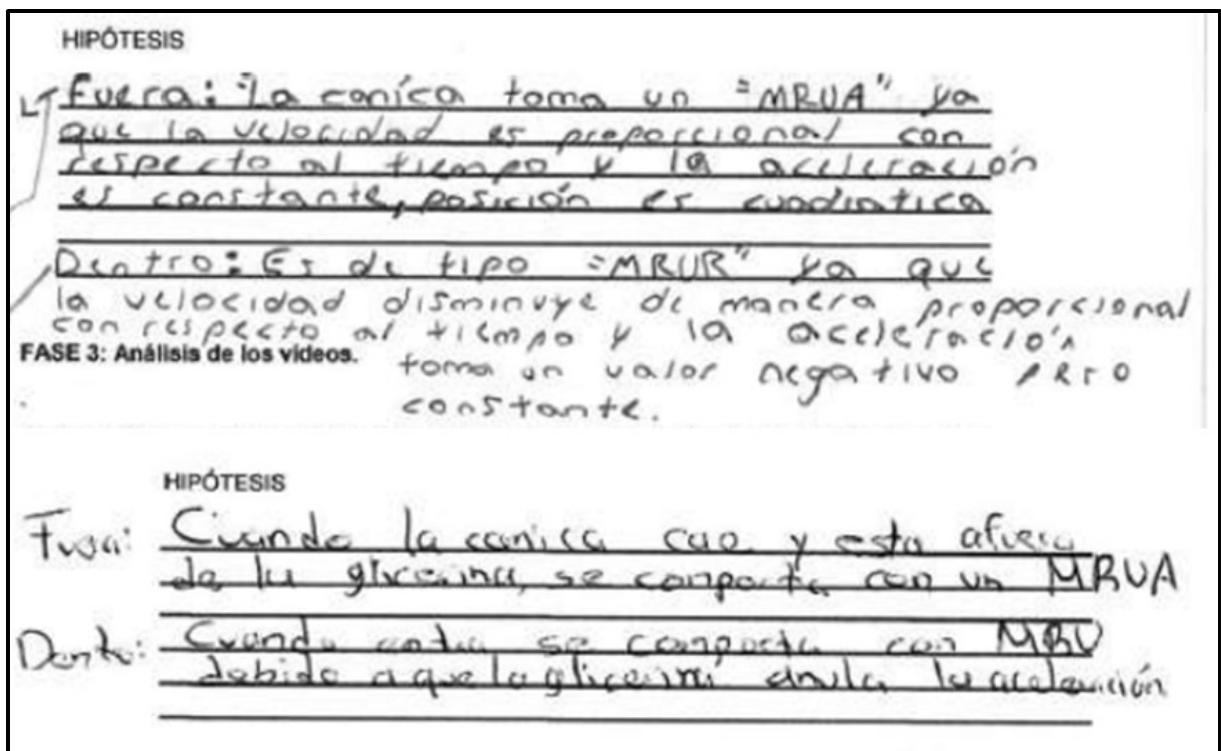 HIPÓTESIS
Fuera: "La canica toma un "MRUA" ya
que la velocidad es proporcional con
respecto al tiempo y la aceleración
es constante, posición es cuadratica
Dentro: Es de tipo "MRUR" ya que
la velocidad disminuye de manera proporcional
con respecto al tiempo y la aceleración
FASE 3: Análisis de los videos.
toma un valor negativo pero
constante.
HIPÓTESIS
Fuera: Cuando la canica cae y esta afuera
de la glicerina, se comporta con un MRUA
Dentro: Cuando entra se comporta con MRU
debido a que la glicerina anula la aceleración